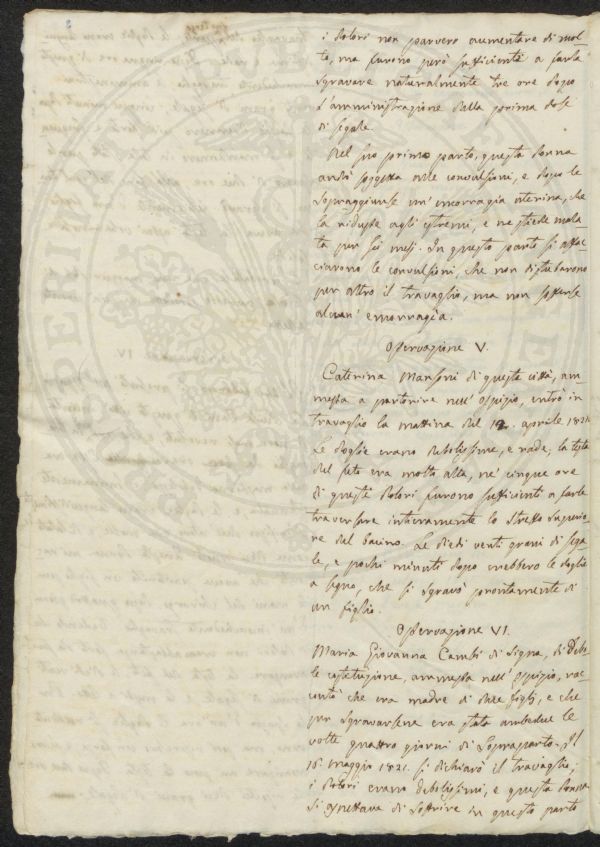 i dolori non parvero aumentare di mol-
to, ma furono però sufficienti a farla
sgravare naturalmente tre ore dopo
l'amministrazione della prima dose
di segale.
Nel suo primo parto, questa donna
andò soggetta alle convulsioni, e dopo le
sopraggiunse un' emorragia uterina, che
la ridusse agli estremi, e ne stiede mala-
ta per sei mesi. In questo parto si affac-
ciarono le convulsioni, che non disturbarono
per altro il travaglio, ma non sofferse
alcun' emorragia.
Osservazione V.
Caterina Mansoni di questa città, am-
messa a partorire nell' Ospizio, entrò in
travaglio la mattina del aprile 1821.
Le doglie erano debolissime, e rade, la testa
del feto era molto alta, nè cinque ore
di questi dolori furono sufficienti a farle
traversare intieramente lo stretto superio-
re del bacino. Le diedi venti grani di sega-
le, e pochi minuti dopo crebbero le doglie
a segno, che si sgravò prontamente di
un figlio.
Osservazione VI.
Maria Giovanna Cambi di Signa, di debo-
le costituzione, ammessa nell' Ospizio, rac-
contò che era madre di due figli, e che
per sgravarsene era stata ambedue le
volte quattro giorni di sopraparto. Il
16 maggio 1821. si dichiarò il travaglio;
i dolori erano debolissimi, e questa donna
si aspettava di soffrire in questo parto